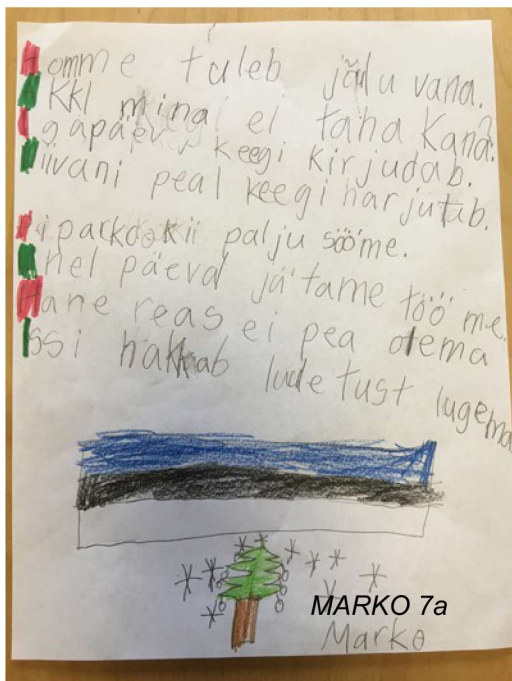 Homme tuleb jõulu vana.
Äkki mina ei taha kana?
Igapäev keegi kirjudab.
Diivani peal keegi harjutab.
Piparkookii palju sööme.
Ühel päeval jätame töö me.
Hane reas ei pea olema
Issi hakkab ludetust lugema
MARKO 7a
Marko